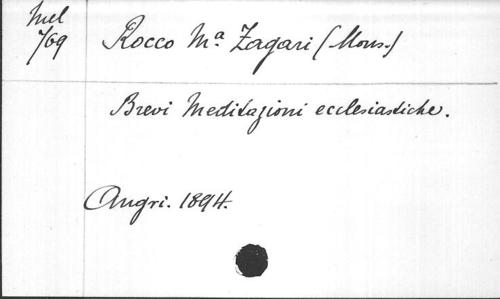 Mel
769
Rocco M.a Zagari (Mons.)
Brevi Meditazioni ecclesiastiche.
Angri. 1894.